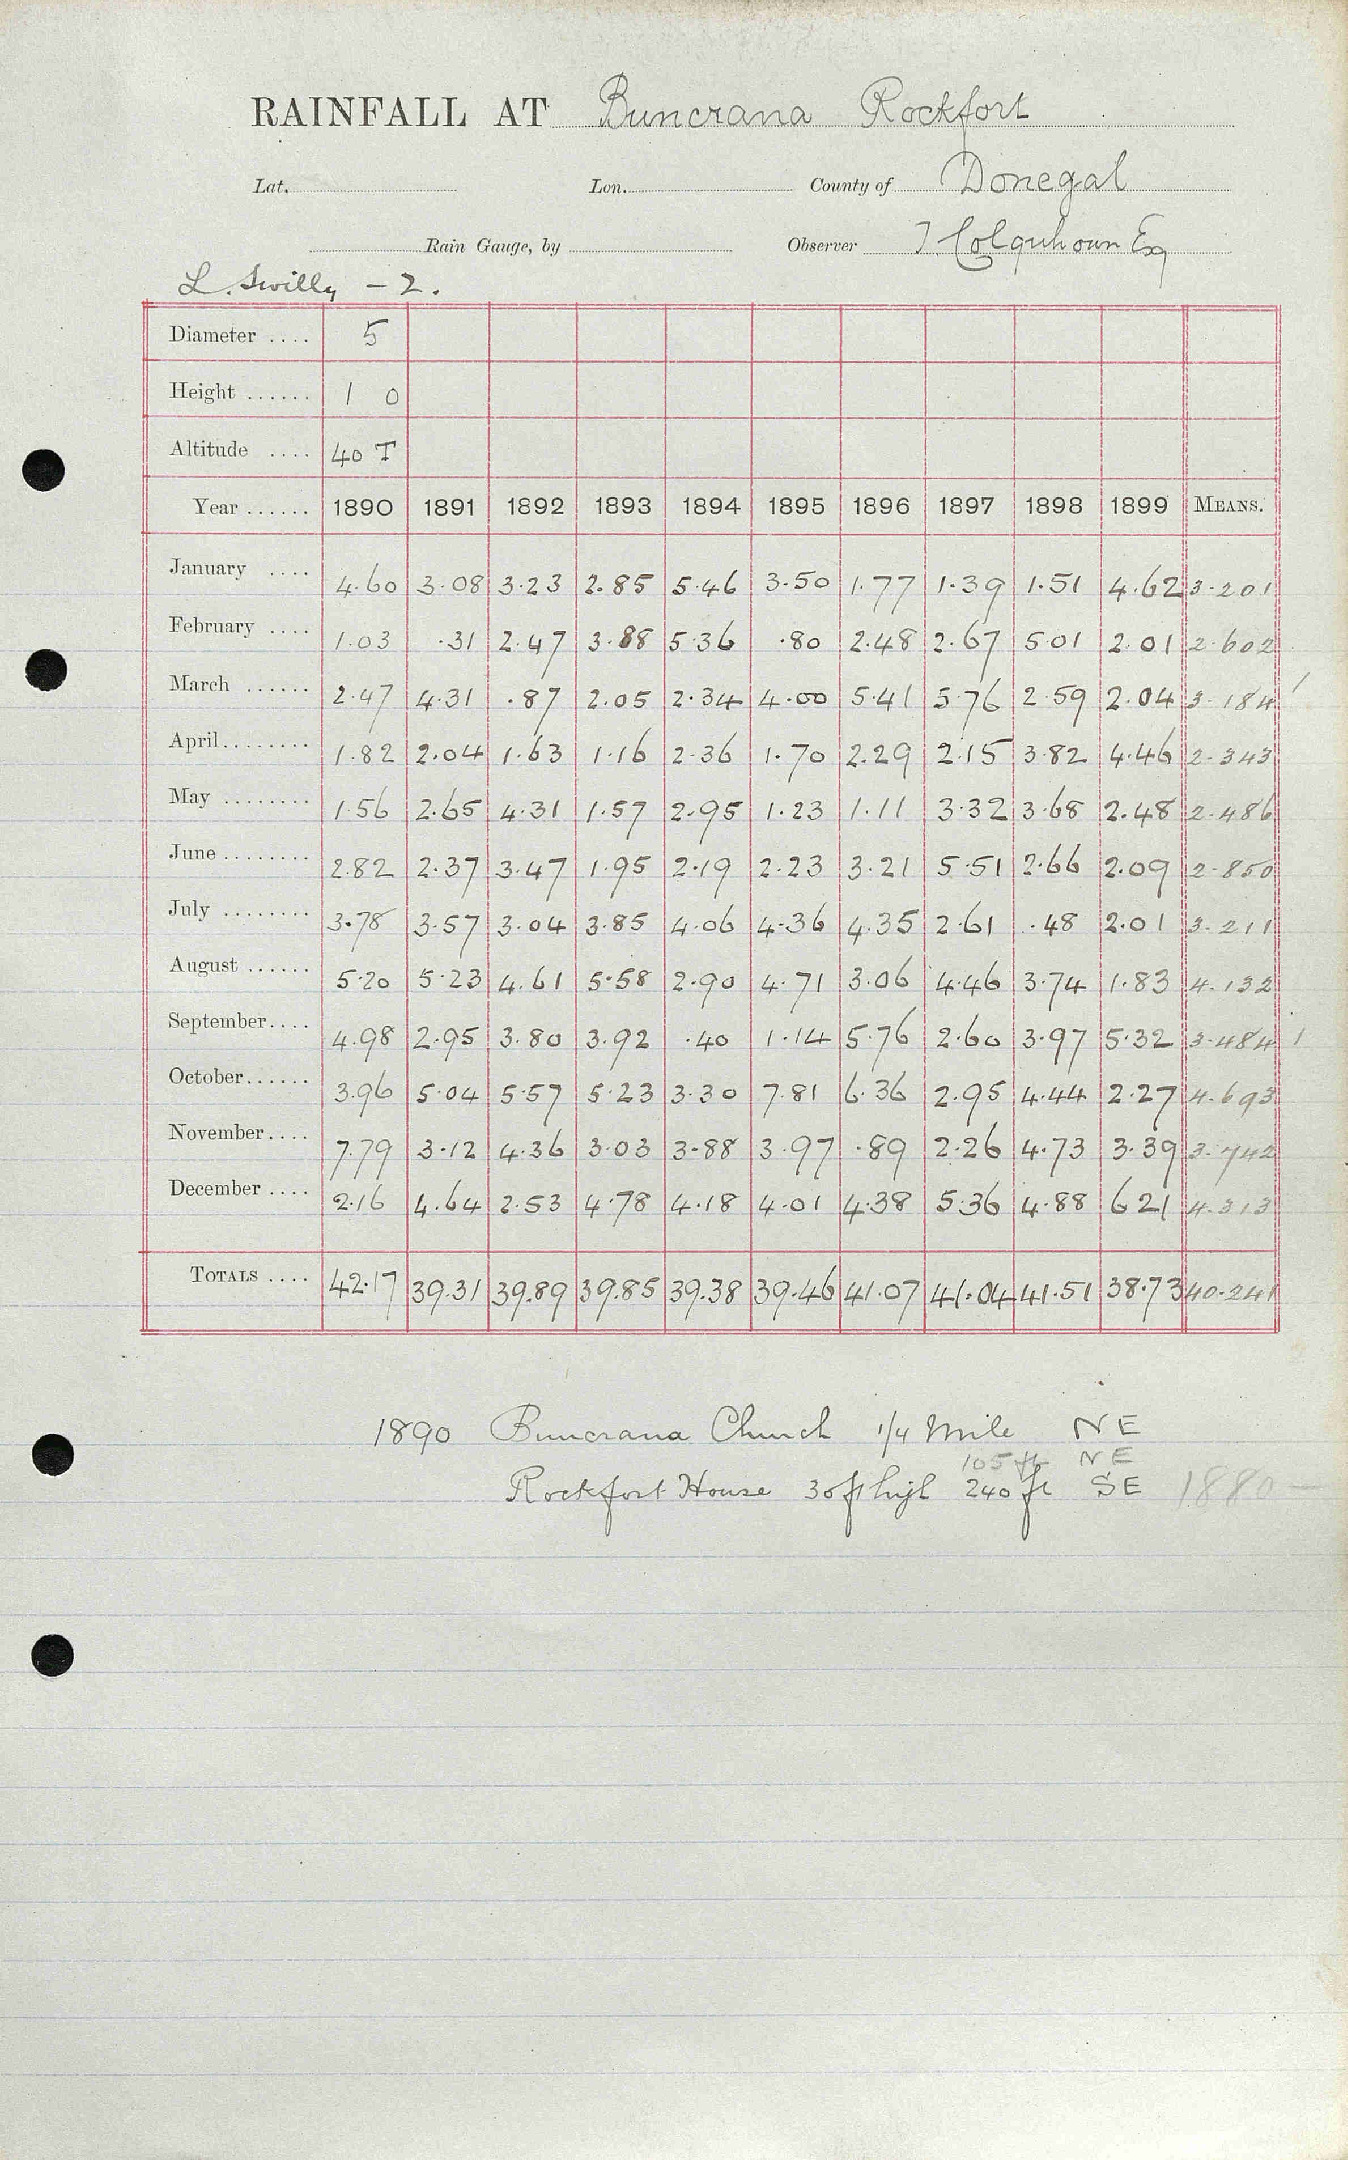 RAINFALL AT Buncrana Rockfort
Lat. Lon. County of Donegal
Rain Gauge, by Observer J Colquhoun Esq
L. Swilly - 2.
Diameter .... 5
Height ...... 1 0
Altitude .... 40 T
Year ...... 1890 1891 1892 1893 1894 1895 1896 1897 1898 1899 MEANS.
January .... 4.60 3.08 3.23 2.85 5.46 3.50 1.77 1.39 1.51 4.62 3.201
February .... 1.03 .31 2.47 3.88 5.36 .80 2.48 2.67 5.01 2.01 2.602
March ...... 2.47 4.31 .87 2.05 2.34 4.00 5.41 5.76 2.59 2.04 3.184 /
April........ 1.82 2.04 1.63 1.16 2.36 1.70 2.29 2.15 3.82 4.46 2.343
May ........ 1.56 2.65 4.31 1.57 2.95 1.23 1.11 3.32 3.68 2.48 2.486
June ........ 2.82 2.37 3.47 1.95 2.19 2.23 3.21 5.51 2.66 2.09 2.850
July ........ 3.78 3.57 3.04 3.85 4.06 4.36 4.35 2.61 .48 2.01 3.211
August ...... 5.20 5.23 4.61 5.58 2.90 4.71 3.06 4.46 3.74 1.83 4.132
September.... 4.98 2.95 3.80 3.92 .40 1.14 5.76 2.60 3.97 5.32 3.484 /
October...... 3.96 5.04 5.57 5.23 3.30 7.81 6.36 2.95 4.44 2.27 4.693
November.... 7.79 3.12 4.36 3.03 3.88 3.97 .89 2.26 4.73 3.39 3.742
December .... 2.16 4.64 2.53 4.78 4.18 4.01 4.38 5.36 4.88 6.21 4.313
TOTALS .... 42.17 39.31 39.89 39.85 39.38 39.46 41.07 41.04 41.51 38.73 40.241
1890 Buncrana Church 1/4 Mile NE
105 ft NE
Rockfort House 30ft high 240 ft SE 1880 —